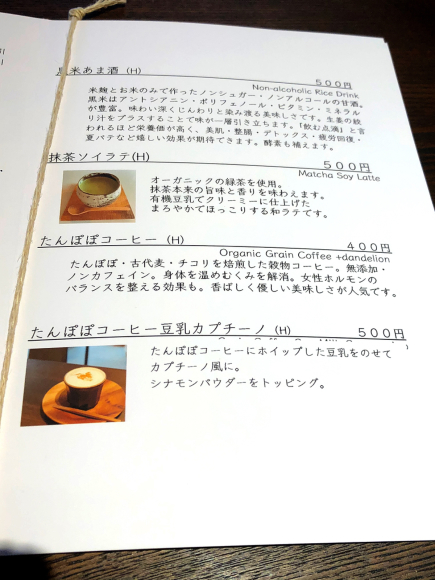 黒米あま酒 (H)
500円
Non-alcoholic Rice Drink
米麹とお米のみで作ったノンシュガー・ノンアルコールの甘酒。
黒米はアントシアニン・ポリフェノール・ビタミン・ミネラル
が豊富。味わい深くじんわりと染み渡る美味しさです。生姜の絞
り汁をプラスすることで味が一層引き立ちます。「飲む点滴」と言
われるほど栄養価が高く、美肌・整腸・デトックス・疲労回復・
夏バテなど嬉しい効果が期待できます。酵素も補えます。
抹茶ソイラテ(H)
500円
Matcha Soy Latte
オーガニックの緑茶を使用。
抹茶本来の旨味と香りを味わえます。
有機豆乳でクリーミーに仕上げた
まろやかでほっこりする和ラテです。
たんぽぽコーヒー (H)
400円
Organic Grain Coffee +dandelion
たんぽぽ・古代麦・チコリを焙煎した穀物コーヒー。無添加・
ノンカフェイン。身体を温めむくみを解消。女性ホルモンの
バランスを整える効果も。香ばしく優しい美味しさが人気です。
たんぽぽコーヒー豆乳カプチーノ (H)
500円
たんぽぽコーヒーにホイップした豆乳をのせて
カプチーノ風に。
シナモンパウダーをトッピング。